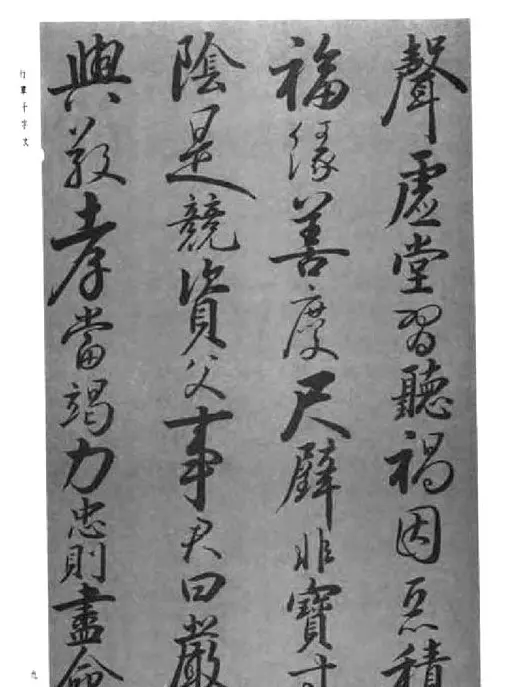 聲虛堂習聽禍因惡積
福緣善慶尺璧非寶寸
陰是競資父事君曰嚴
與敬孝當竭力忠則盡命
行草千字文
九